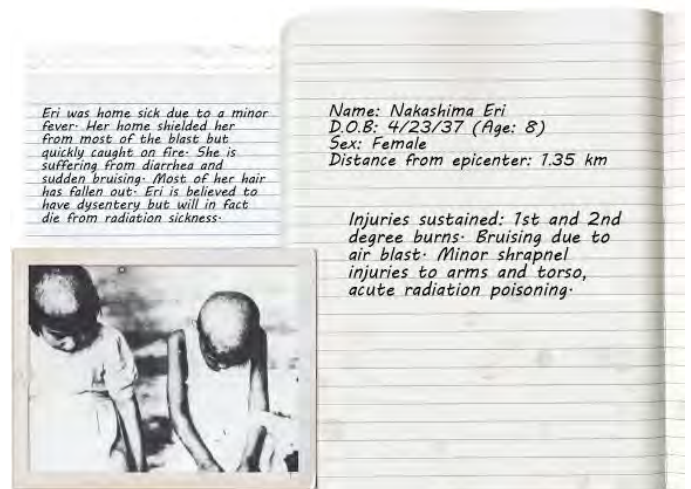 Eri was home sick due to a minor
fever. Her home shielded her
from most of the blast but
quickly caught on fire. She is
suffering from diarrhea and
sudden bruising. Most of her hair
has fallen out. Eri is believed to
have dysentery but will in fact
die from radiation sickness.
Name: Nakashima Eri
D.O.B: 4/23/37 (Age: 8)
Sex: Female
Distance from epicenter: 1.35 km
Injuries sustained: 1st and 2nd
degree burns. Bruising due to
air blast. Minor shrapnel
injuries to arms and torso,
acute radiation poisoning.